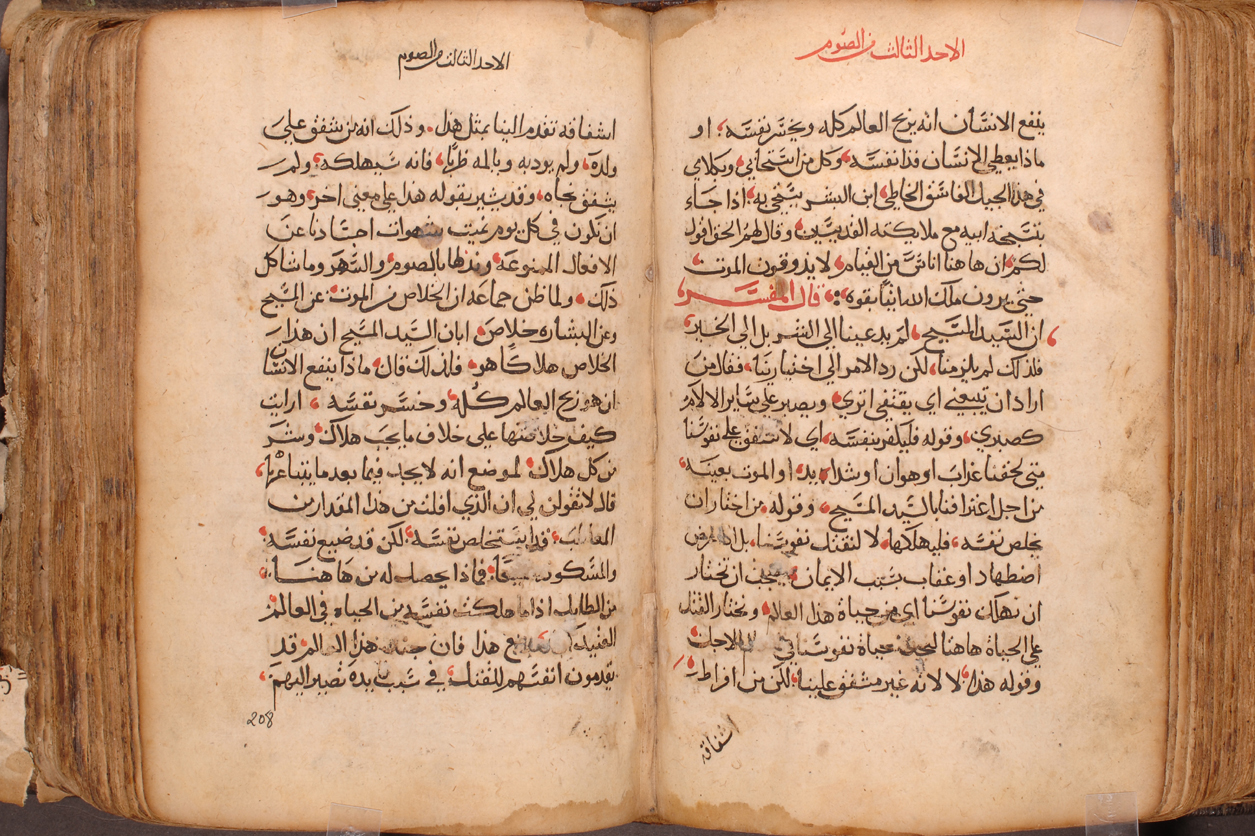 الاحد الثالث من الصوم
ينفع الانسان انه يربح العالم كله ويخسر نفسه، او
ماذا يعطي الانسان فدا نفسه، وكل من استحاني وبكلامي
في هذا الجيل الفاسق الخاطي ابن البشر يستحي به، اذا جاء
بمجد ابيه مع ملايكته القديسين، وقال لهم الحق اقول
لكم ان هاهنا اناس من القيام لا يذوقون الموت
حتى يرون ملكوت الله اتيا بقوه، قال المفسر
ان السيد المسيح لم يدعينا الى الشر بل الى الخير
فلذلك لم يلزمنا، لكن رد الامر الى اختيارنا، فقال من
اراد ان يتبعني اي يقتفي اثري ويصبر على ساير الالام
كصبري، وقوله فليكفر بنفسه، اي لا يشفق على نفوسنا
متى لحقنا عذاب او هوان او شدايد، او الموت بعينه
من اجل اعترافنا بالسيد المسيح، وقوله من اختار ان
يخلص نفسه، فليهلكها، لا لنقتل نفوسنا، بل اذا عرض
اضطهاد او عقاب بسبب الايمان، يجب ان نختار
ان نهلك نفوسنا اي من حياة هذا العالم ونختار القتل
على الحياة هاهنا لنجد حياة نفوسنا في الاجل
وقوله هذا، لا لانه غير مشفق علينا، لكن من افراط
اشفاقه
الاحد الثالث من الصوم
اشفاقه تقدم الينا بمثل هذا، وذلك انه من شفق على
ولده، ولم يودبه ويالمه ظربا، فانه سيهلكه، ولم
يشفق تجاه، وقد يشير بقوله هذا على معنى اخر، وهو
ان نكون في كل يوم نميت شهوات اجسادنا عن
الافعال الممنوعه، ونذلها بالصوم، والسهر وما شاكل
ذلك، ولما ظن جماعه ان الخلاص من الموت عن المسيح
وعن البشاره خلاص، ابان السيد المسيح ان هذا
الخلاص هلاكا هو، فلذلك قال، ماذا ينفع الانسان
ان هو ربح العالم كله، وخسر نفسه، ارايت
كيف خلاصنها على خلاف ما يجب هلاك، وشر
من كل هلاك، لموضع انه لا يجد فيما بعد ما يبتاعها،
قال لا تقولن لي ان الذي افلت من هذا المقدار من
المعاطب، قد استخلص نفسه، لكن قد ضيع نفسه
والمسكونه، فماذا يحصل له من هاهنا
من الطايل اذا ما هلكت نفسه من الحياه في العالم
العتيد، هذا فان جند هذا العالم قد
يقدمون انفسهم للقتل، في سبب يده تصير اليهم
208